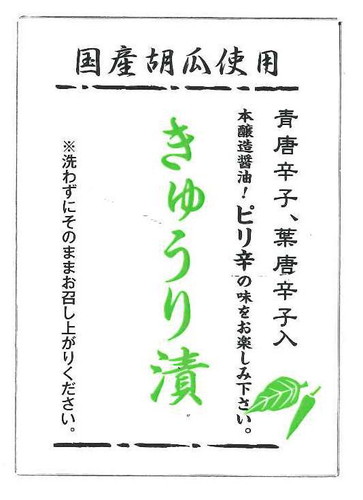 国産胡瓜使用
青唐辛子、葉唐辛子入
本醸造醤油！ピリ辛の味をお楽しみ下さい。
きゅうり漬
※洗わずにそのままお召し上がりください。